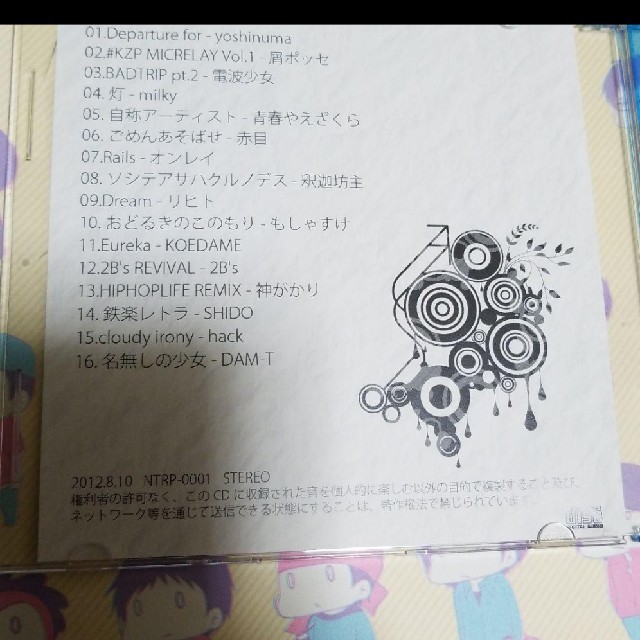 01.Departure for - yoshinuma
02.#KZP MICRELAY Vol.1 - 屑ポッセ
03.BADTRIP pt.2 - 電波少女
04. 灯 - milky
05. 自称アーティスト - 青春やえざくら
06. ごめんあそばせ - 赤目
07.Rails - オンレイ
08. ソシテアサハクルノデス - 釈迦坊主
09.Dream - リヒト
10. おどるきのこのもり - もしゃすけ
11.Eureka - KOEDAME
12.2B's REVIVAL - 2B's
13.HIPHOPLIFE REMIX - 神がかり
14. 鉄楽レトラ - SHIDO
15.cloudy irony - hack
16. 名無しの少女 - DAM-T
2012.8.10 NTRP-0001 STEREO
権利者の許可なく、この CD に収録された音を個人的に楽しむ以外の目的で複製すること及び、
ネットワーク等を通じて送信できる状態にすることは、著作権法で禁じられています。